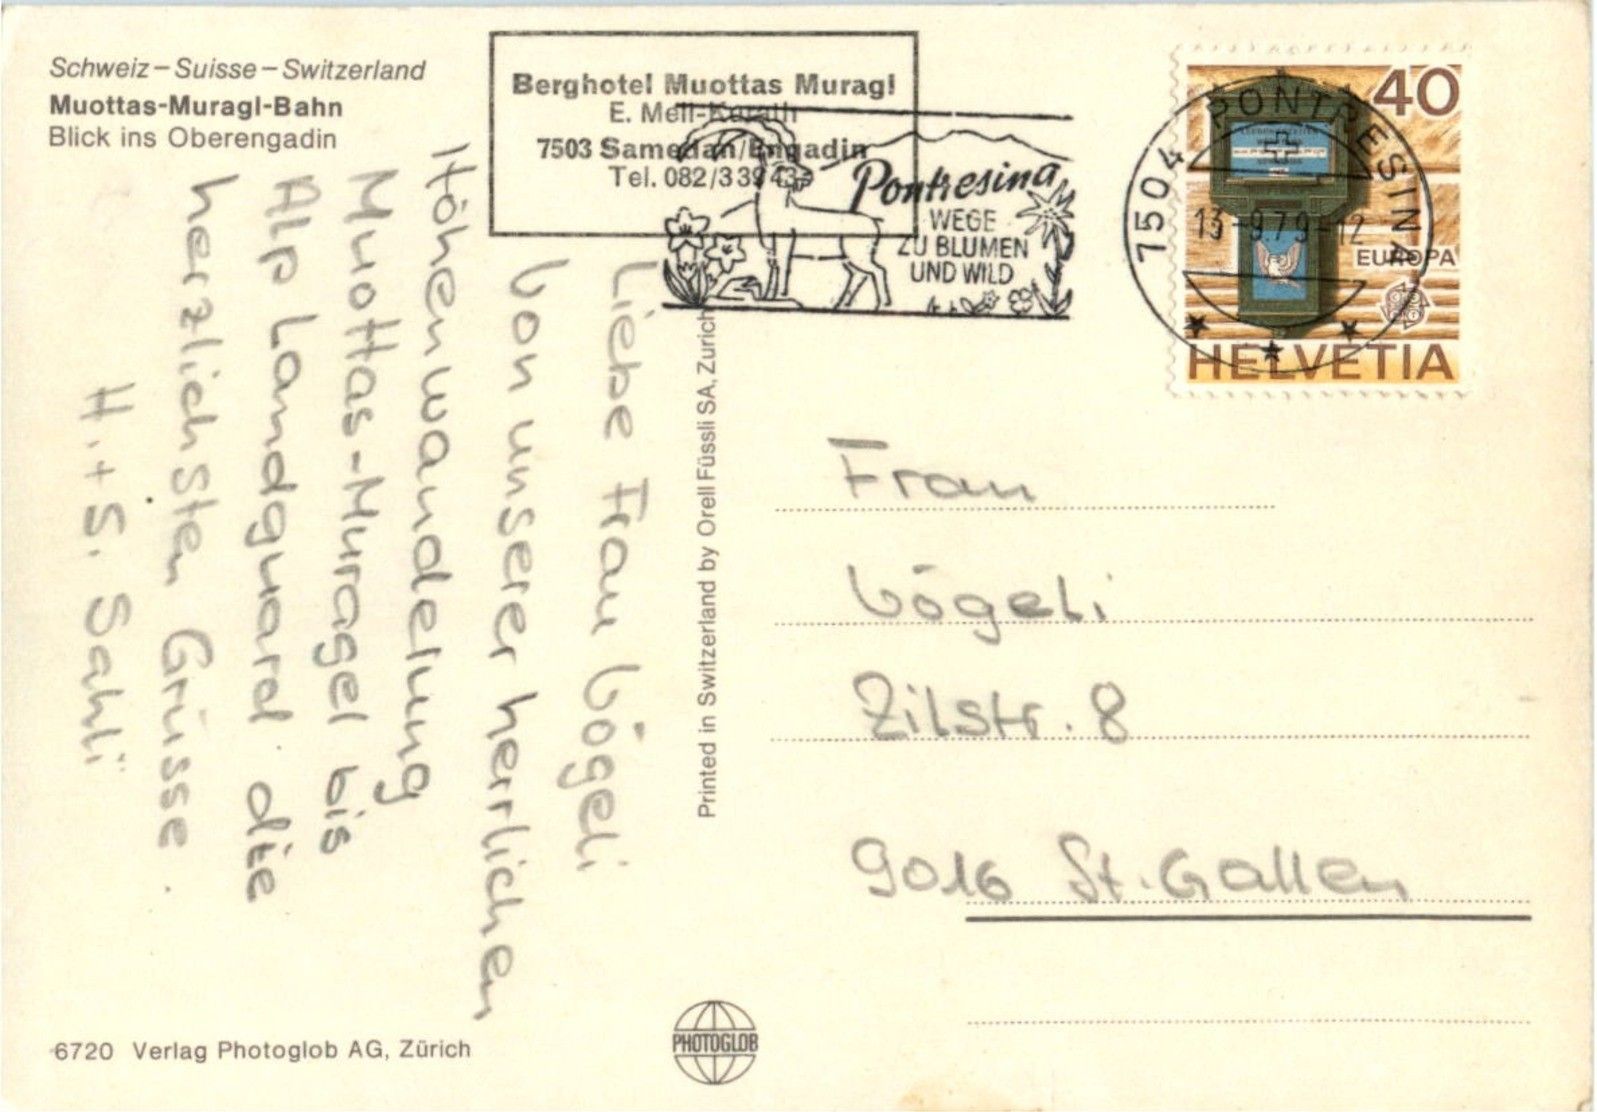 Schweiz – Suisse – Switzerland
Muottas-Muragl-Bahn
Blick ins Oberengadin
Berghotel Muottas Muragl
E. Meli-
7503 Samedan/Engadin
Tel. 082/3 39 43
Pontresina
WEGE
ZU BLUMEN
UND WILD
7504 PONTRESINA
13-9.79-12
40
EUROPA
HELVETIA
Liebe Frau Vögeli
Von unserer herrlichen
Höhenwandelung
Muottas-Muragel bis
Alp Landguard die
herzlichsten Grüsse.
H. + S. Sahli
Printed in Switzerland by Orell Füssli SA, Zurich
Frau
Vögeli
Zilstr. 8
9016 St. Gallen
6720 Verlag Photoglob AG, Zürich
PHOTOGLOB